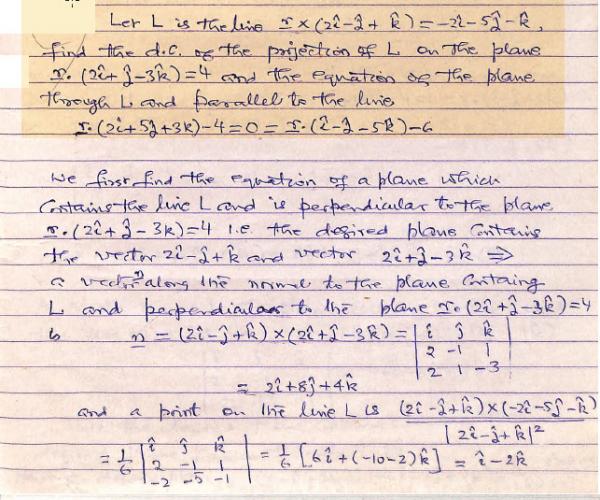 Let L is the line r × (2î-ĵ+k̂) = -2î-5ĵ-k̂,
find the d.c. of the projection of L on the plane
r.(2î+ĵ-3k̂)=4 and the equation of the plane
through L and parallel to the line
r.(2î+5ĵ+3k)-4=0=r.(î-ĵ-5k̂)-6
We first find the equation of a plane which
Contains the line L and is perpendicular to the plane
r.(2î+ĵ-3k)=4 i.e. the desired plane contains
the vector 2î-ĵ+k̂ and vector 2î+ĵ-3k̂ ⇒
a vector n along the normal to the plane containg
L and perpendicular to the plane r.(2î+ĵ-3k̂)=4
is n = (2î-ĵ+k̂)×(2î+ĵ-3k̂) = | î ĵ k̂ |
| 2 -1 1 |
| 2 1 -3 |
= 2î+8ĵ+4k̂
and a point on the line L is (2î-ĵ+k̂)×(-2î-5ĵ-k̂)
|2î-ĵ+k̂|²
= 1/6 | î ĵ k̂ | = 1/6 [6î+(-10-2)k̂] = î-2k̂
2 -1 1
-2 -5 -1